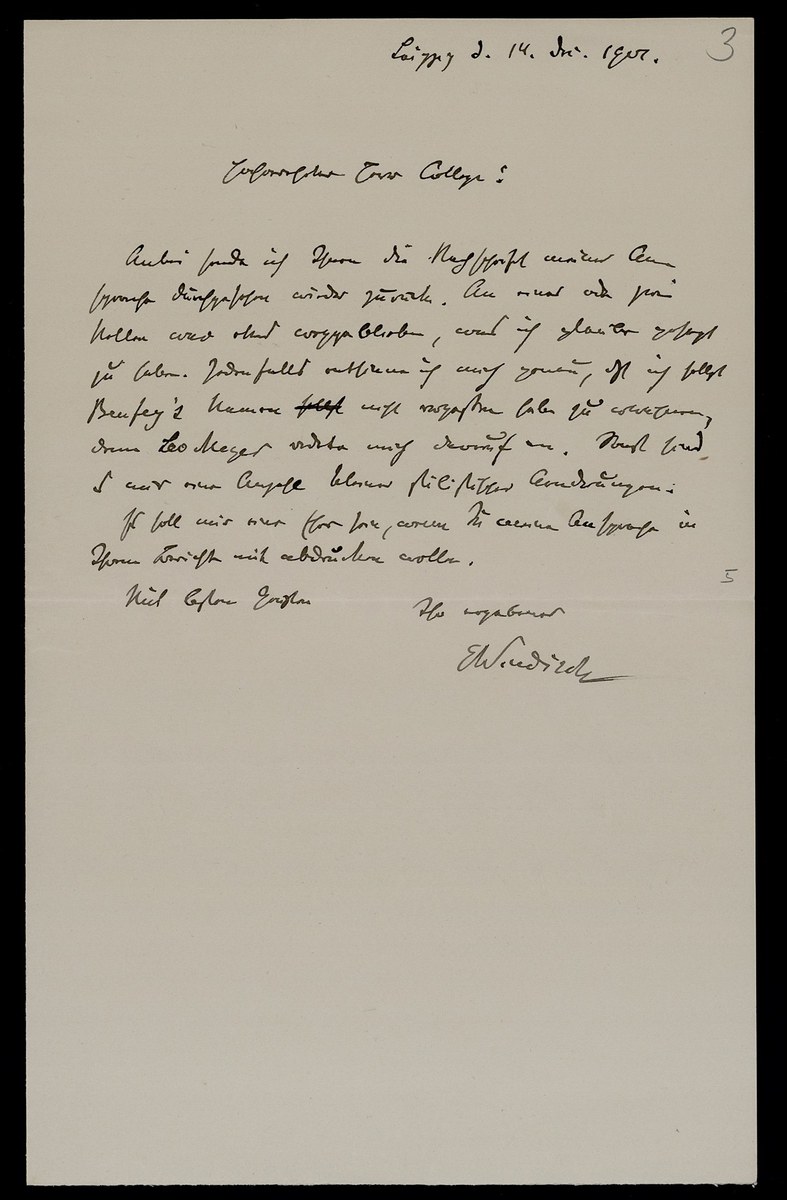 3
Leipzig d. 14. Dec. 1901.
Hochverehrter Herr College!
Anbei sende ich Ihnen die Nachschrift meiner An-
sprache durchgesehen wieder zurück. An einer oder zwei
Stellen war etwas weggeblieben, was ich glaube gesagt
zu haben. Jedenfalls entsinne ich mich genau, dß ich selbst
Benfey's Namen selbst nicht vergessen habe zu erwähnen,
denn Leo Meyer redete mich darauf an. Sonst sind
es nur eine Anzahl kleiner stilistischer Aenderungen.
Es soll mir eine Ehre sein, wenn Sie meine Ansprache in
Ihrem Berichte mit abdrucken wollen.
5
Mit besten Grüßen
Ihr ergebener
EWindisch